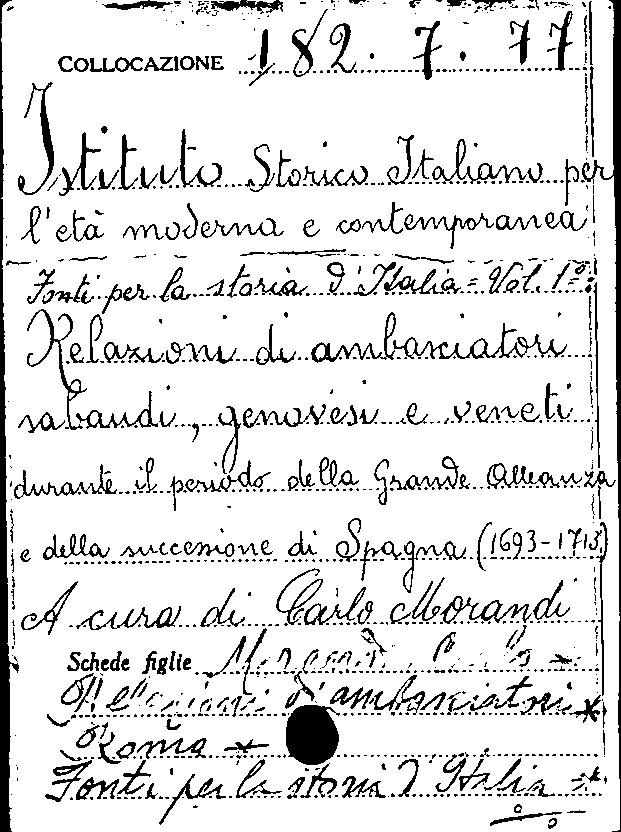 COLLOCAZIONE 182.7.77
Istituto Storico Italiano per
l'età moderna e contemporanea
Fonti per la storia d'Italia = Vol. 1º:
Relazioni di ambasciatori
sabaudi, genovesi e veneti
durante il periodo della Grande Alleanza
e della successione di Spagna (1693-1713)
A cura di Carlo Morandi
Schede figlie Morandi Carlo
Relazioni d'ambasciatori
Roma
Fonti per la storia d'Italia